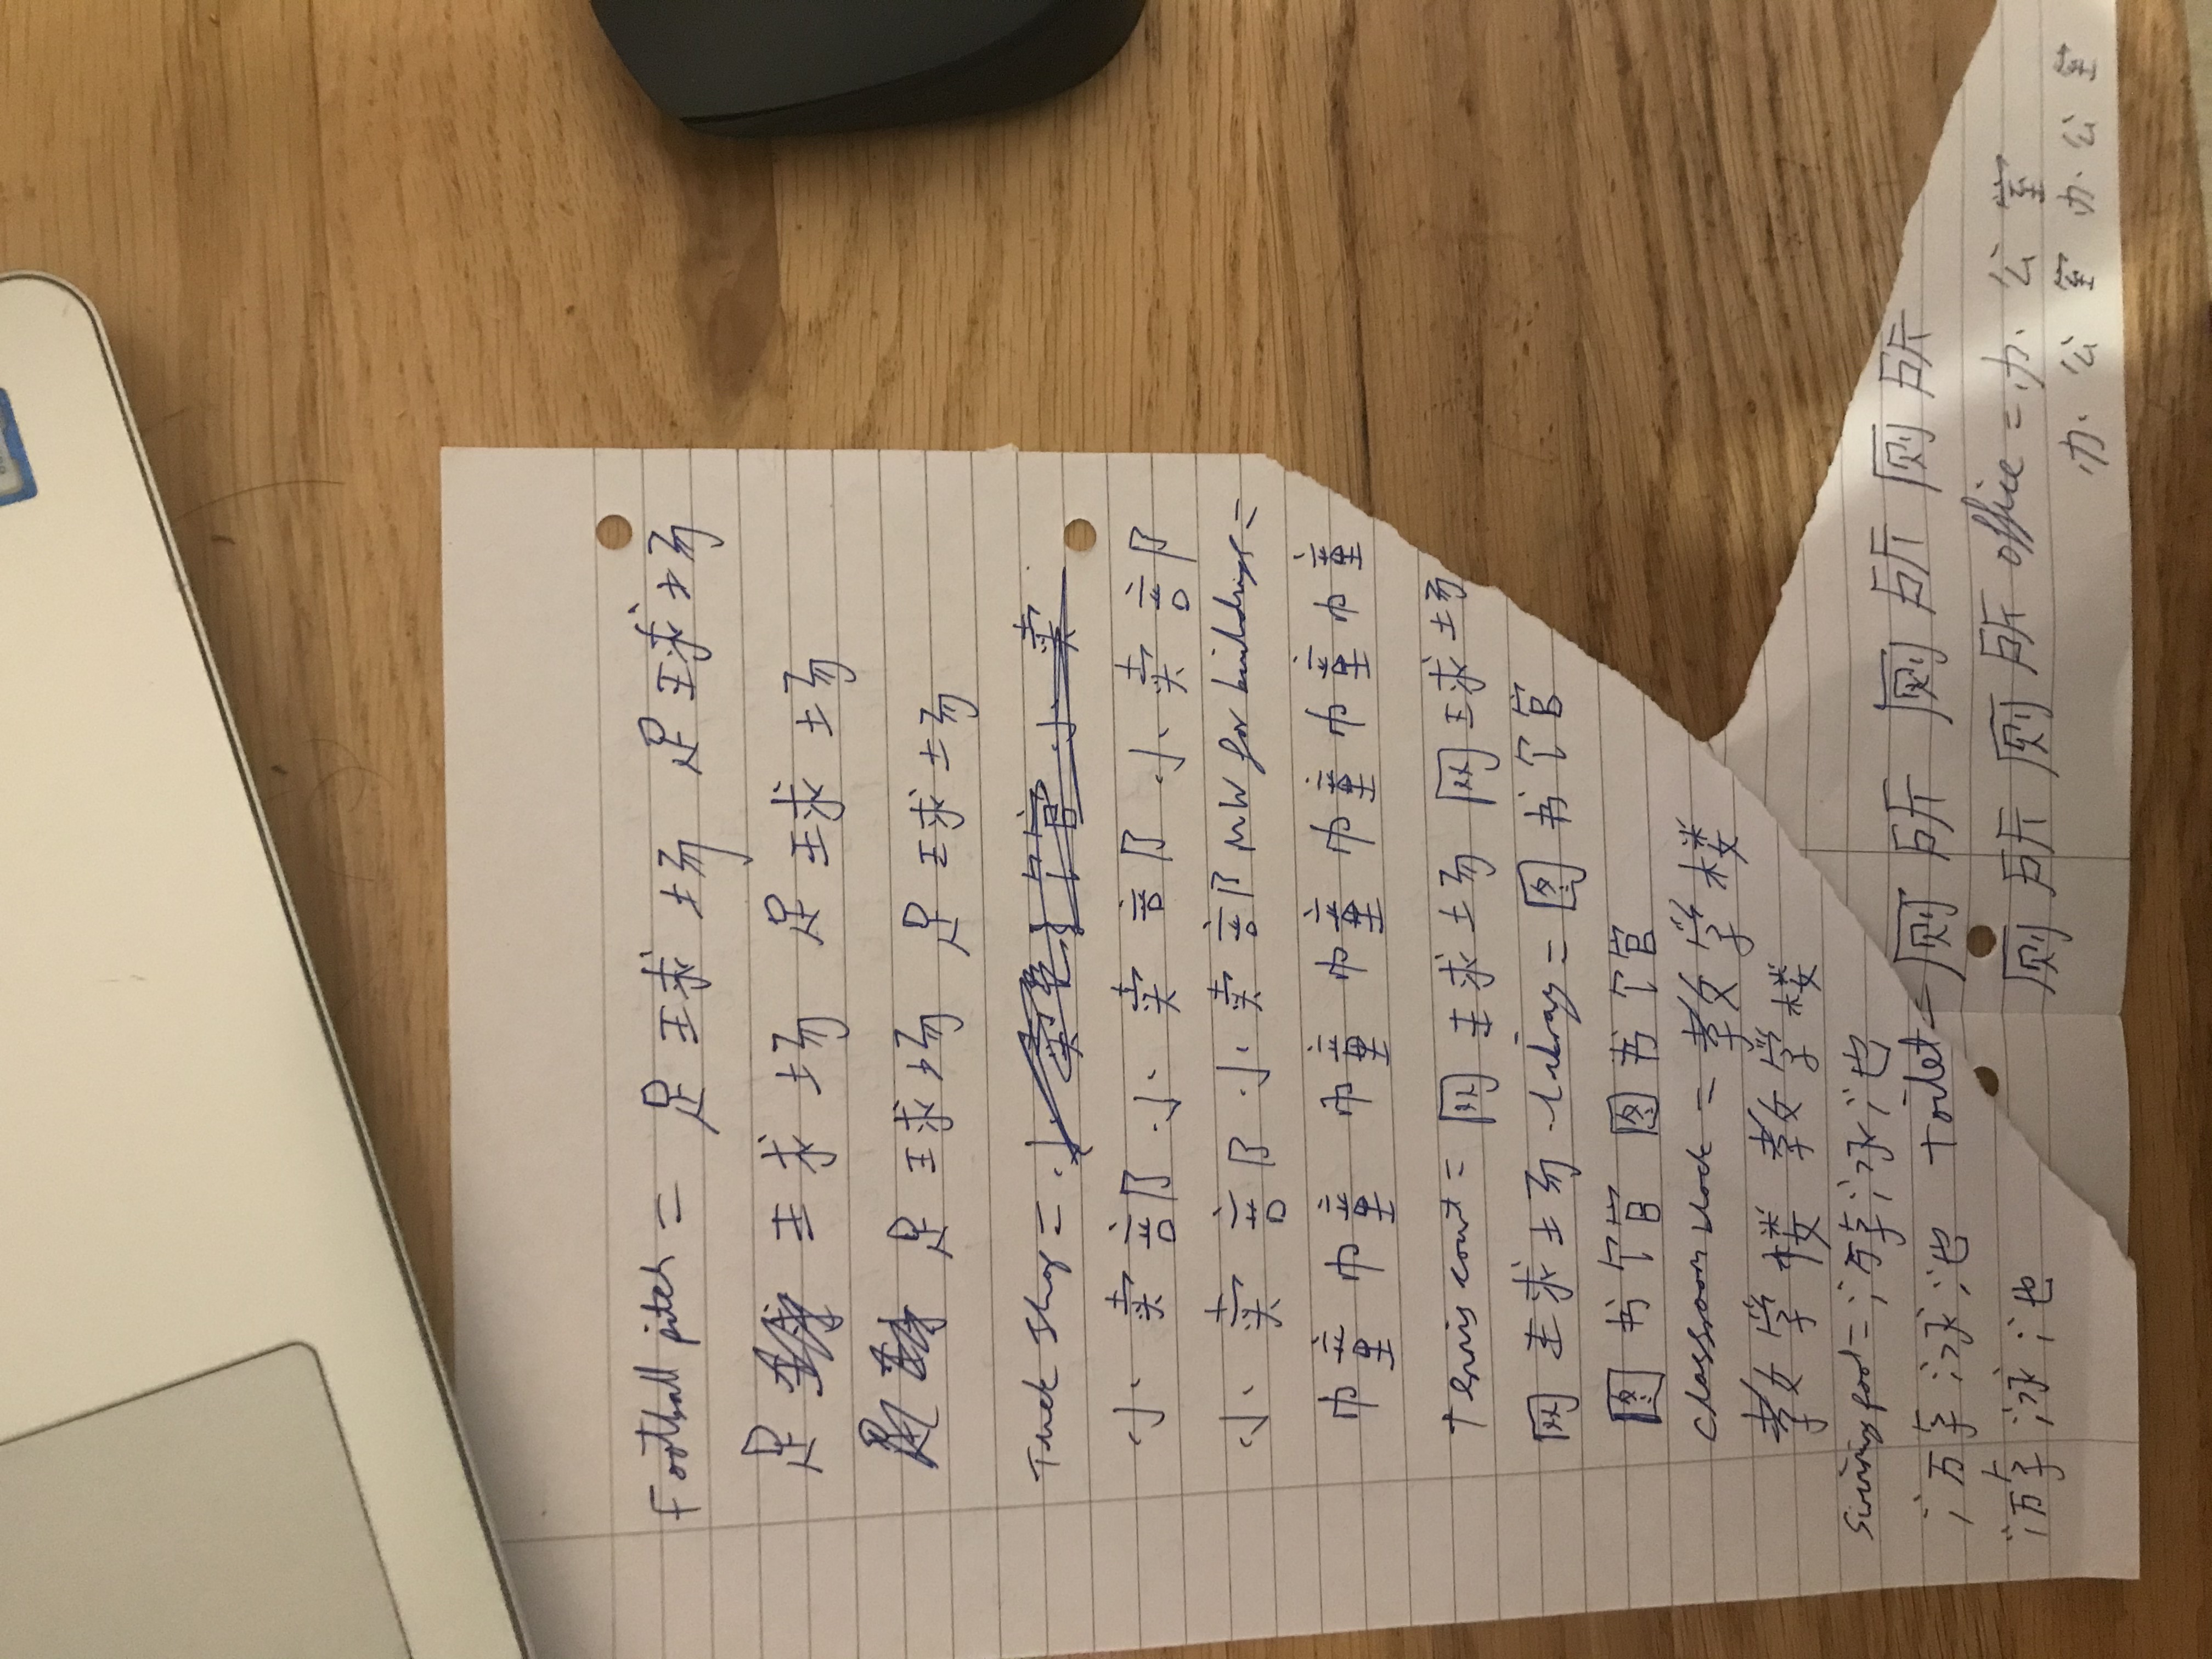 Football pitch = 足球场 足球场
足 球场 足球场
足球场 足球场
Tuck Shop = 小卖
小卖部 小卖部 小卖部
小卖部 小卖部 MW for buildings =
幢 幢 幢 幢 幢 幢 幢
tennis court = 网球场 网球场
网球场 Library = 图书馆
图书馆 图书馆
classroom block = 教学楼
教学楼 教学楼
Swimming pool = 游泳池
游泳池 toilet = 厕所 厕所 厕所
游泳池 厕所 厕所 office = 办公室
办公室 办公室